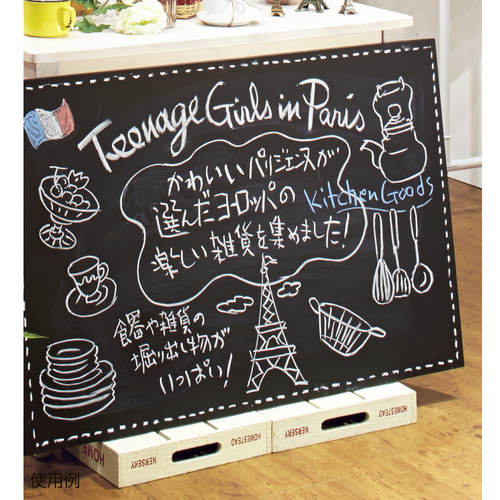 Teenage Girls in Paris
かわいいパリジェンヌが
選んだヨーロッパの
楽しい雑貨を集めました!
Kitchen Goods
食器や雑貨の
堀り出し物が
いっぱい!
HOMESTEAD
NERSERY
HOMESTEAD
NERSERY
使用例